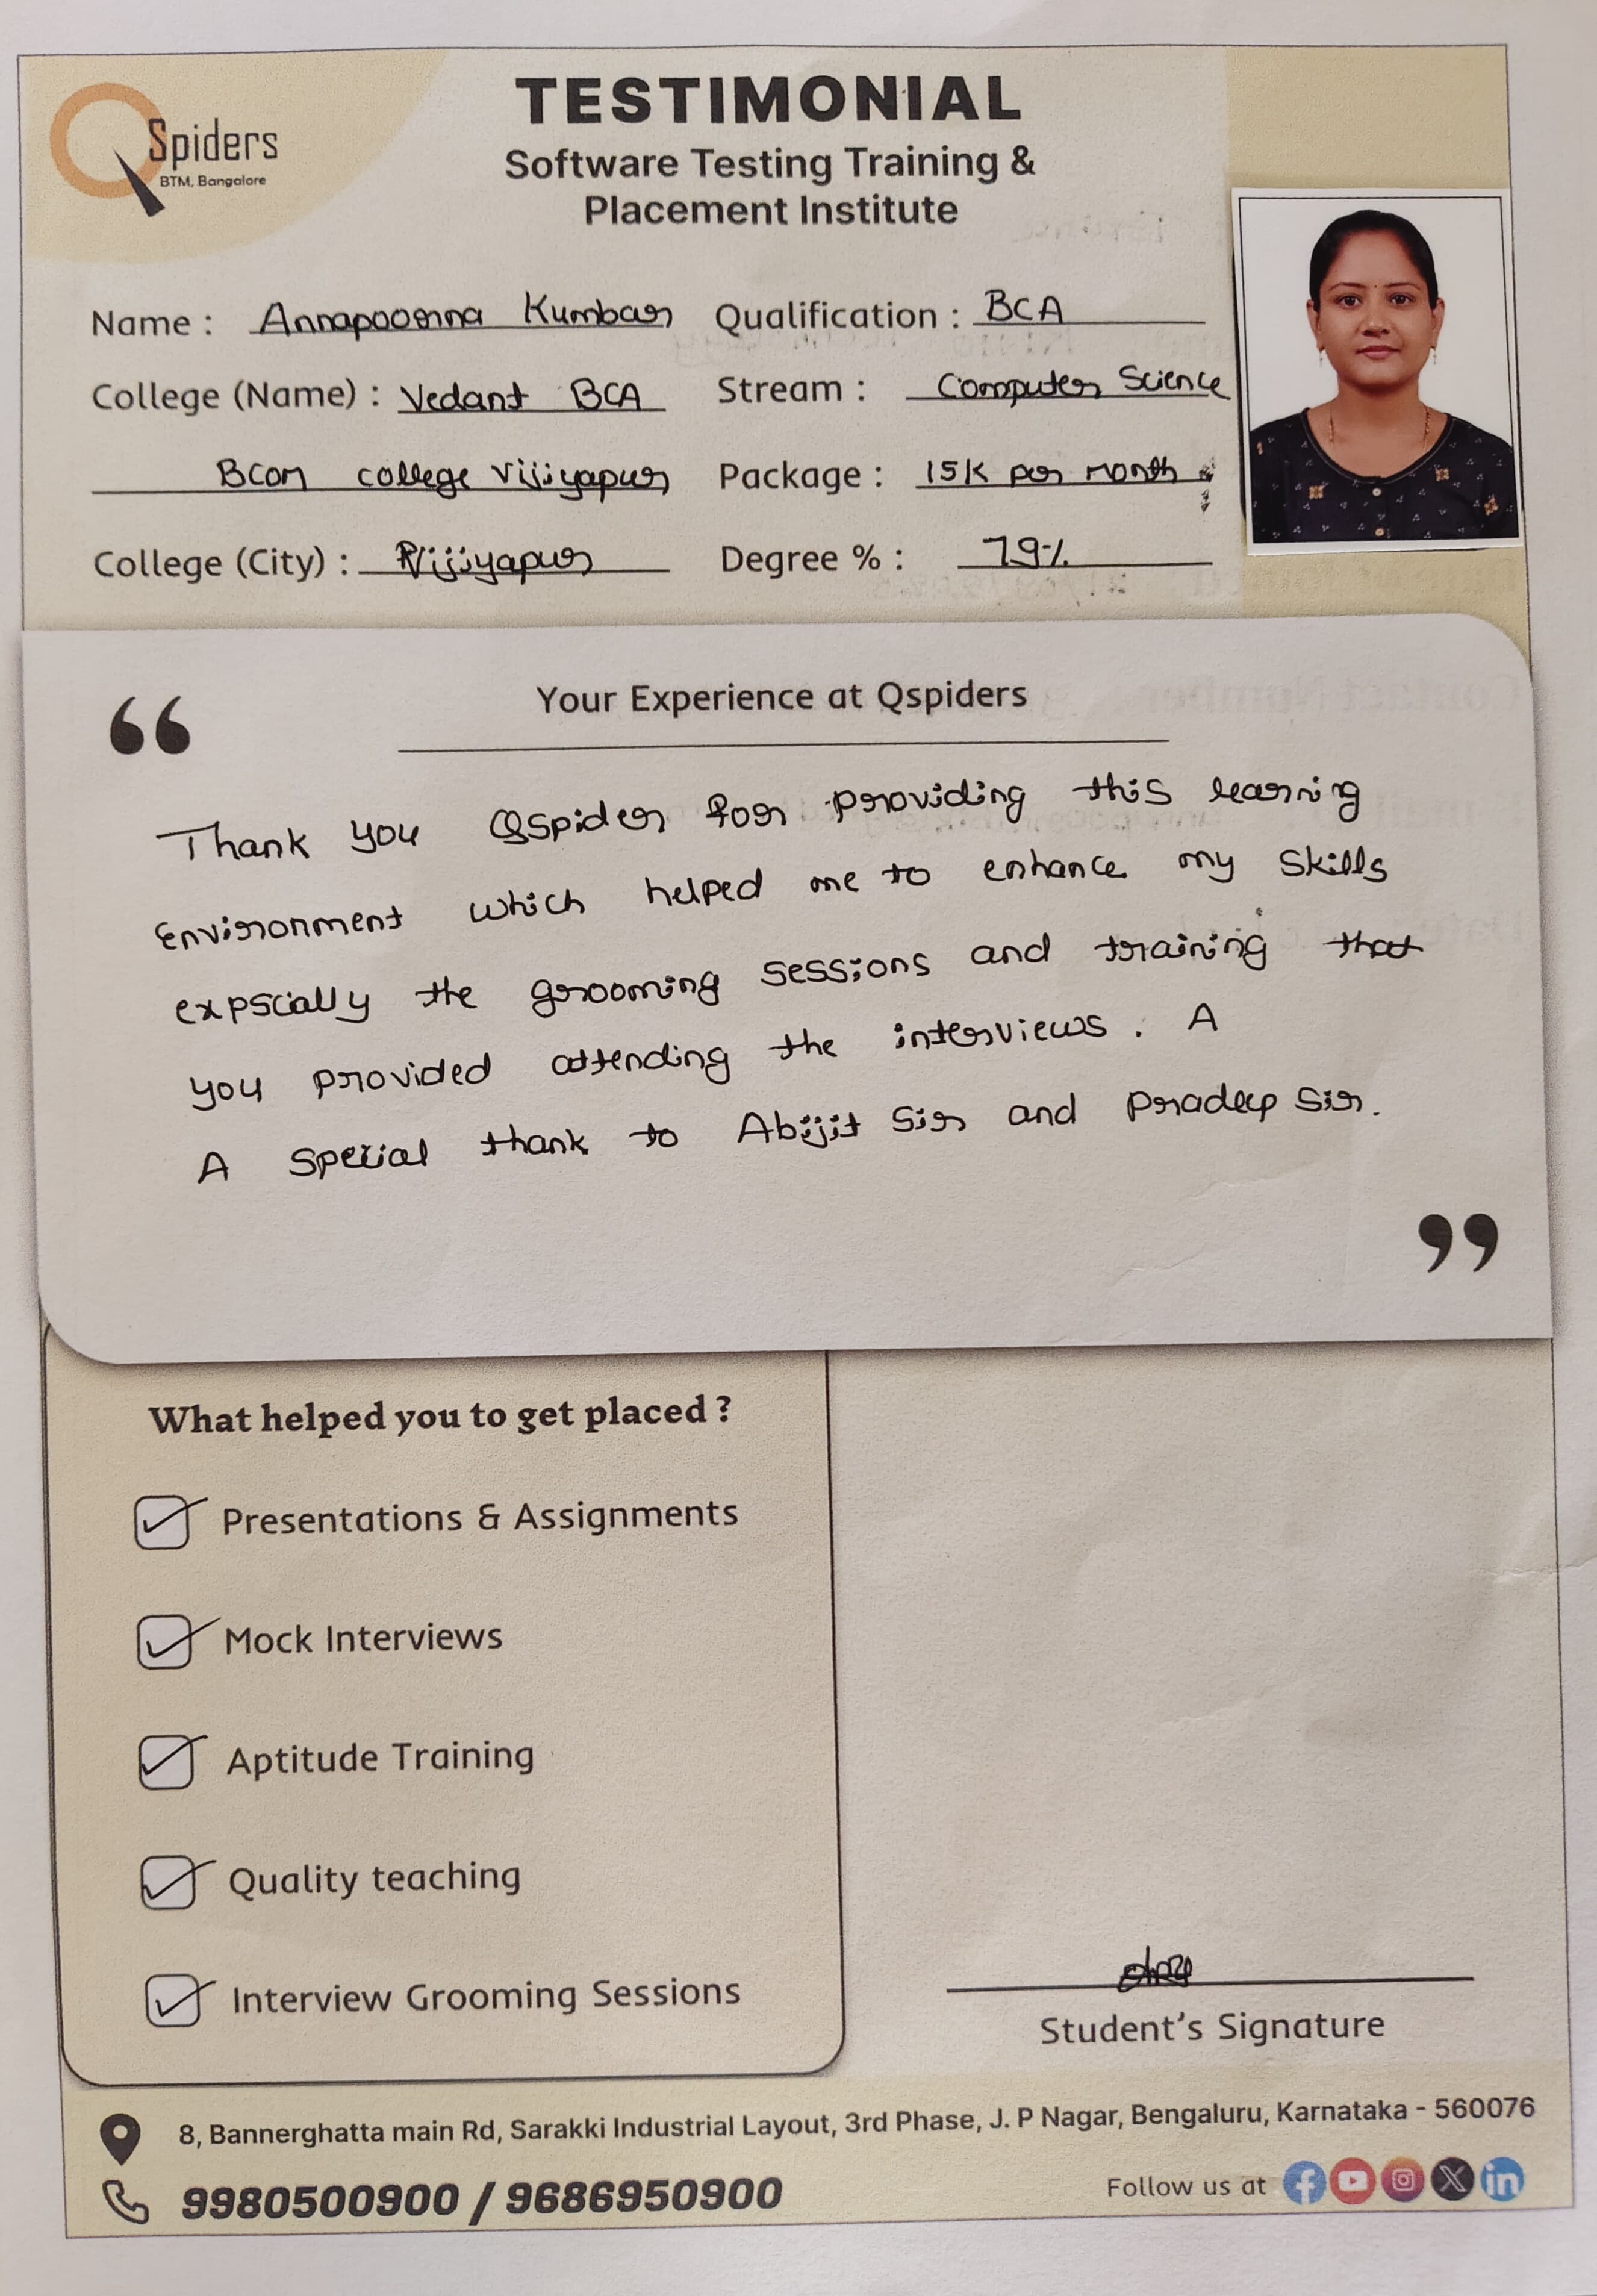 Spiders
BTM, Bangalore
TESTIMONIAL
Software Testing Training &
Placement Institute
Name : Annapoorna Kumbar
Qualification : BCA
College (Name) : Vedant BCA
Stream : Computer Science
Bcom college vijiyapur
Package : 15K per month
College (City) : Vijiyapur
Degree % : 79%
“
Your Experience at Qspiders
Thank you Qspider for providing this learning
Environment which helped me to enhance my skills
expscially the grooming sessions and training that
you provided attending the interviews. A
A special thank to Abijit sir and pradeep sir.
”
What helped you to get placed ?
Presentations & Assignments
Mock Interviews
Aptitude Training
Quality teaching
Interview Grooming Sessions
Student's Signature
8, Bannerghatta main Rd, Sarakki Industrial Layout, 3rd Phase, J. P Nagar, Bengaluru, Karnataka - 560076
9980500900 / 9686950900
Follow us at